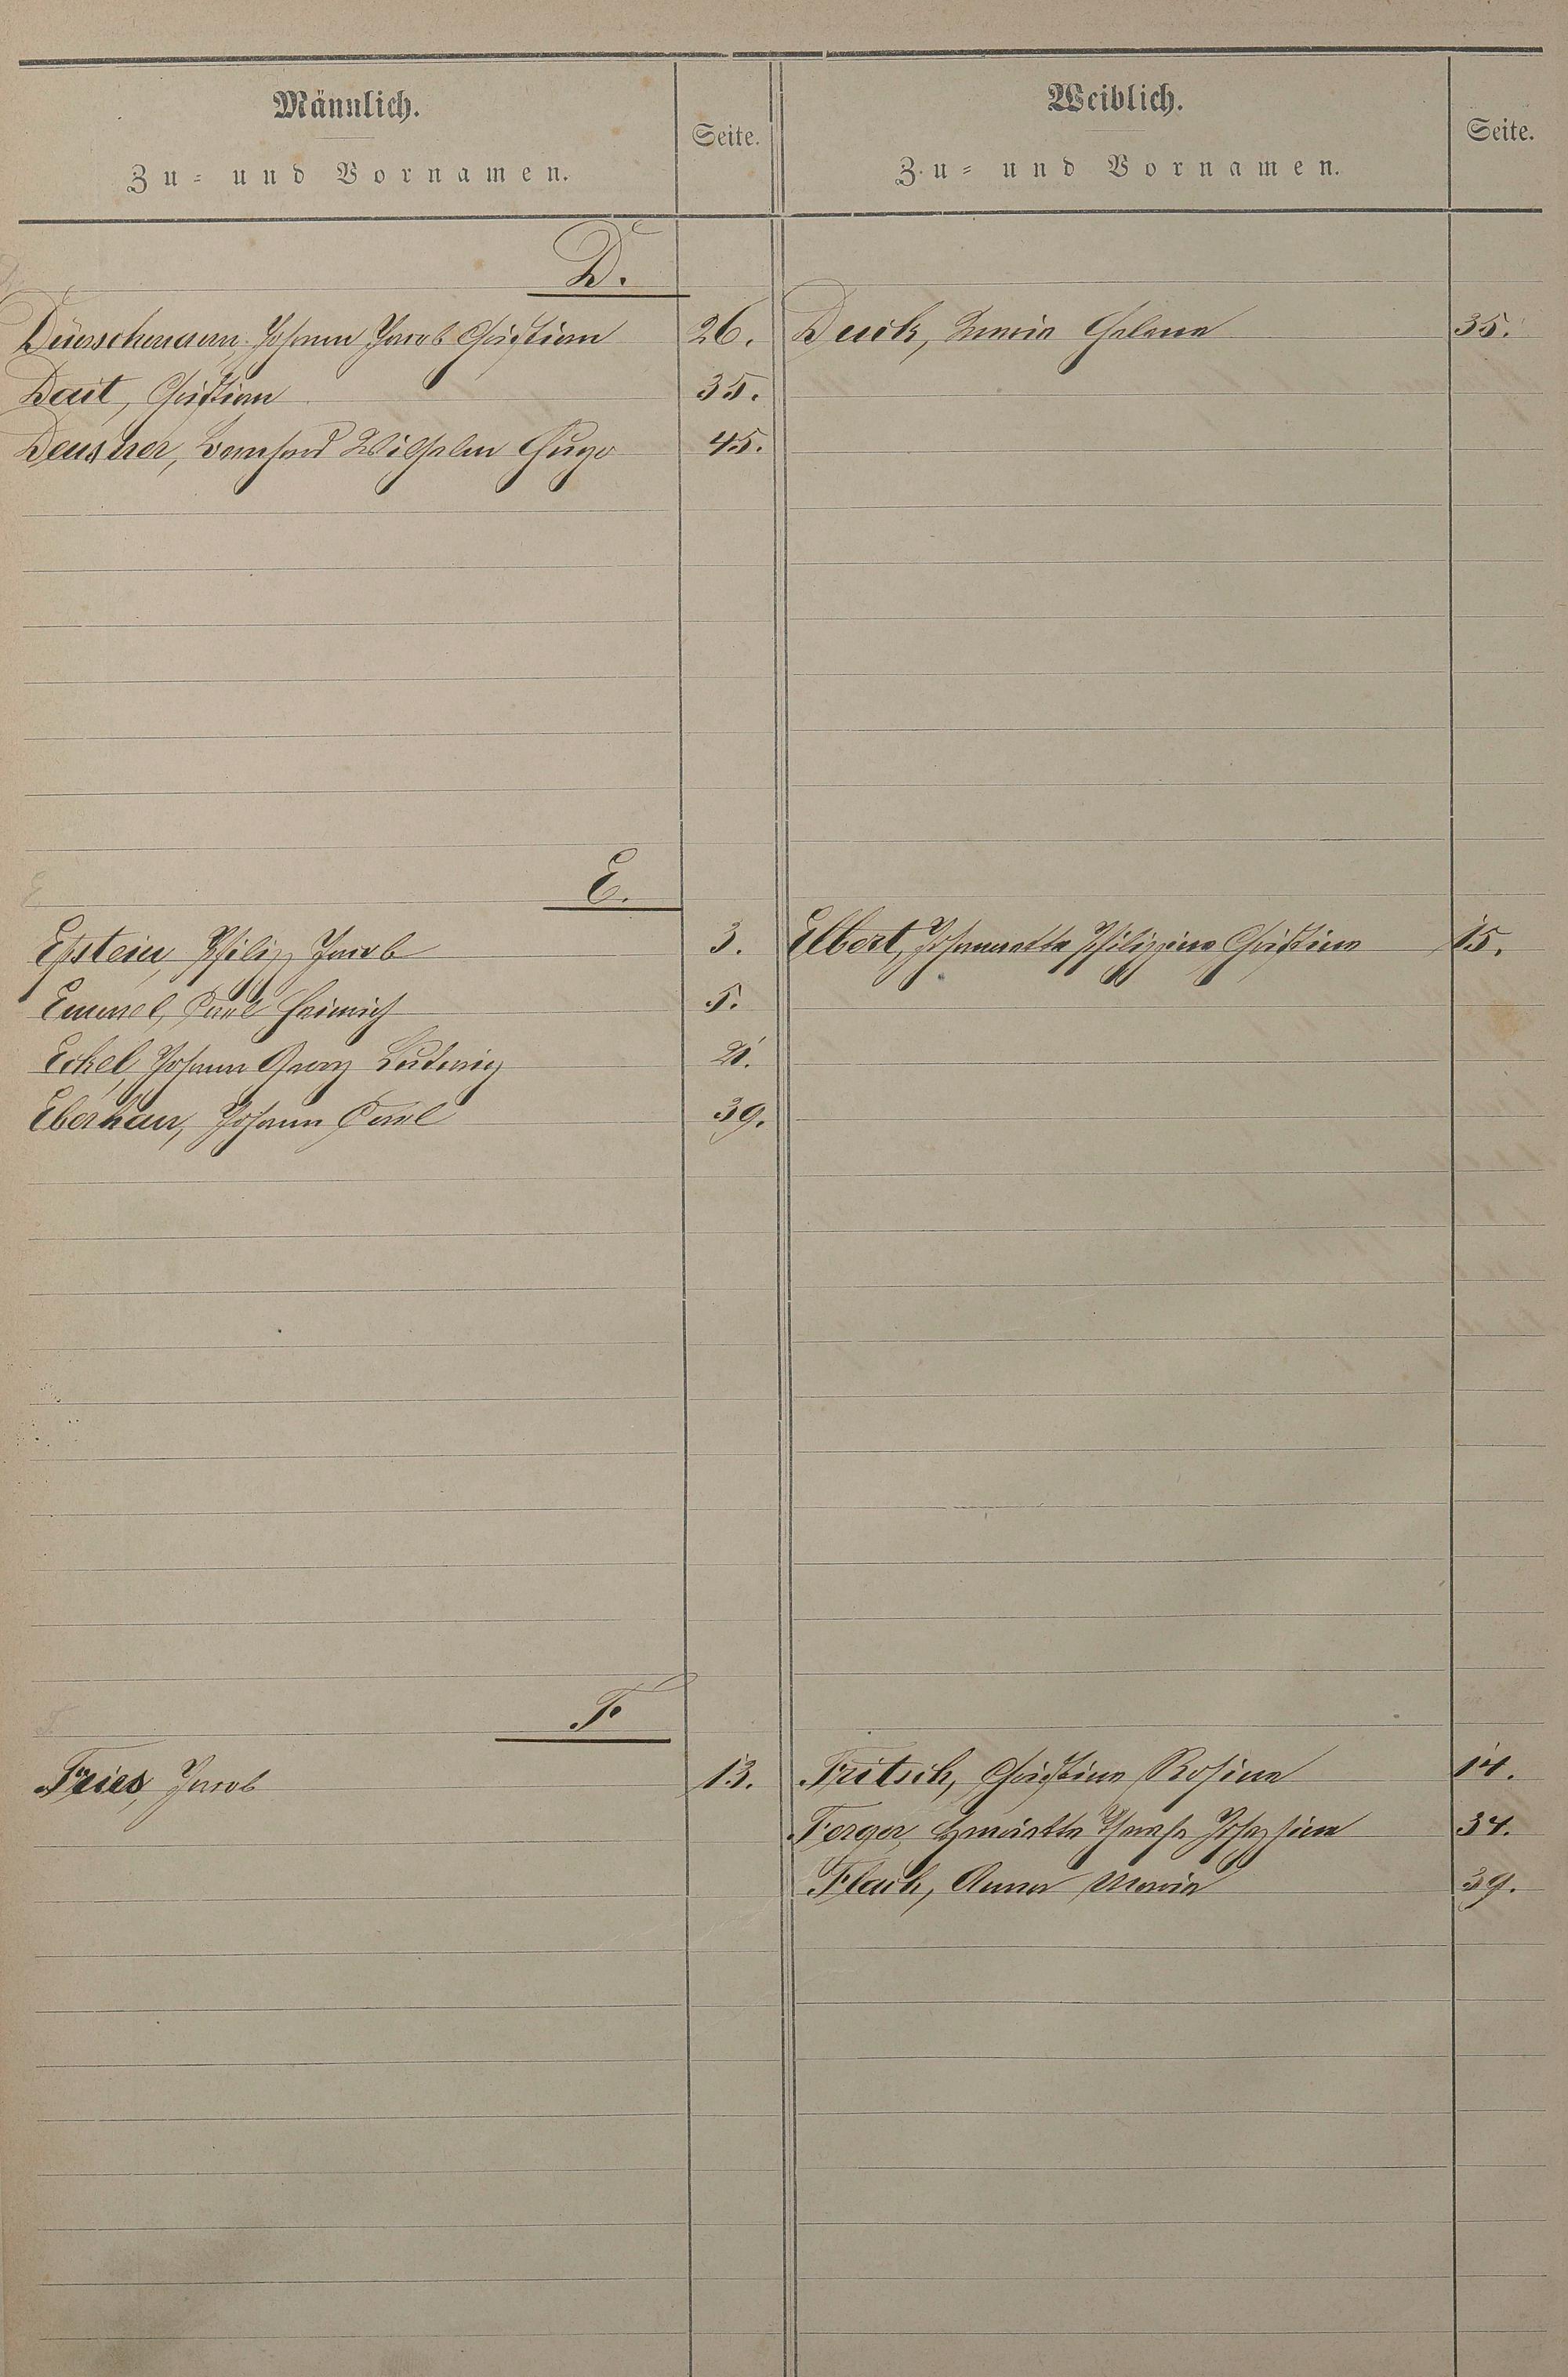 Männlich.
Zu- und Vornamen.
Seite.
Weiblich.
Zu- und Vornamen.
Seite.
D.
Johann Jacob Christian 26.
Duck, Helena 35.
Christian 35.
Bernhard Wilhelm Hugo 45.
E.
Epstein, Philipp Jacob 3.
Elbert, Johannette Philippine Christine 15.
Emmel, Carl Heinrich 5.
Eckel, Johann Georg Ludwig 21.
Johann Carl 39.
F.
Fries, Jacob 13.
Fritsch, Christine Rosine 14.
Ferger, Henriette Therese Josephine 34.
Flach, Anna Maria 39.